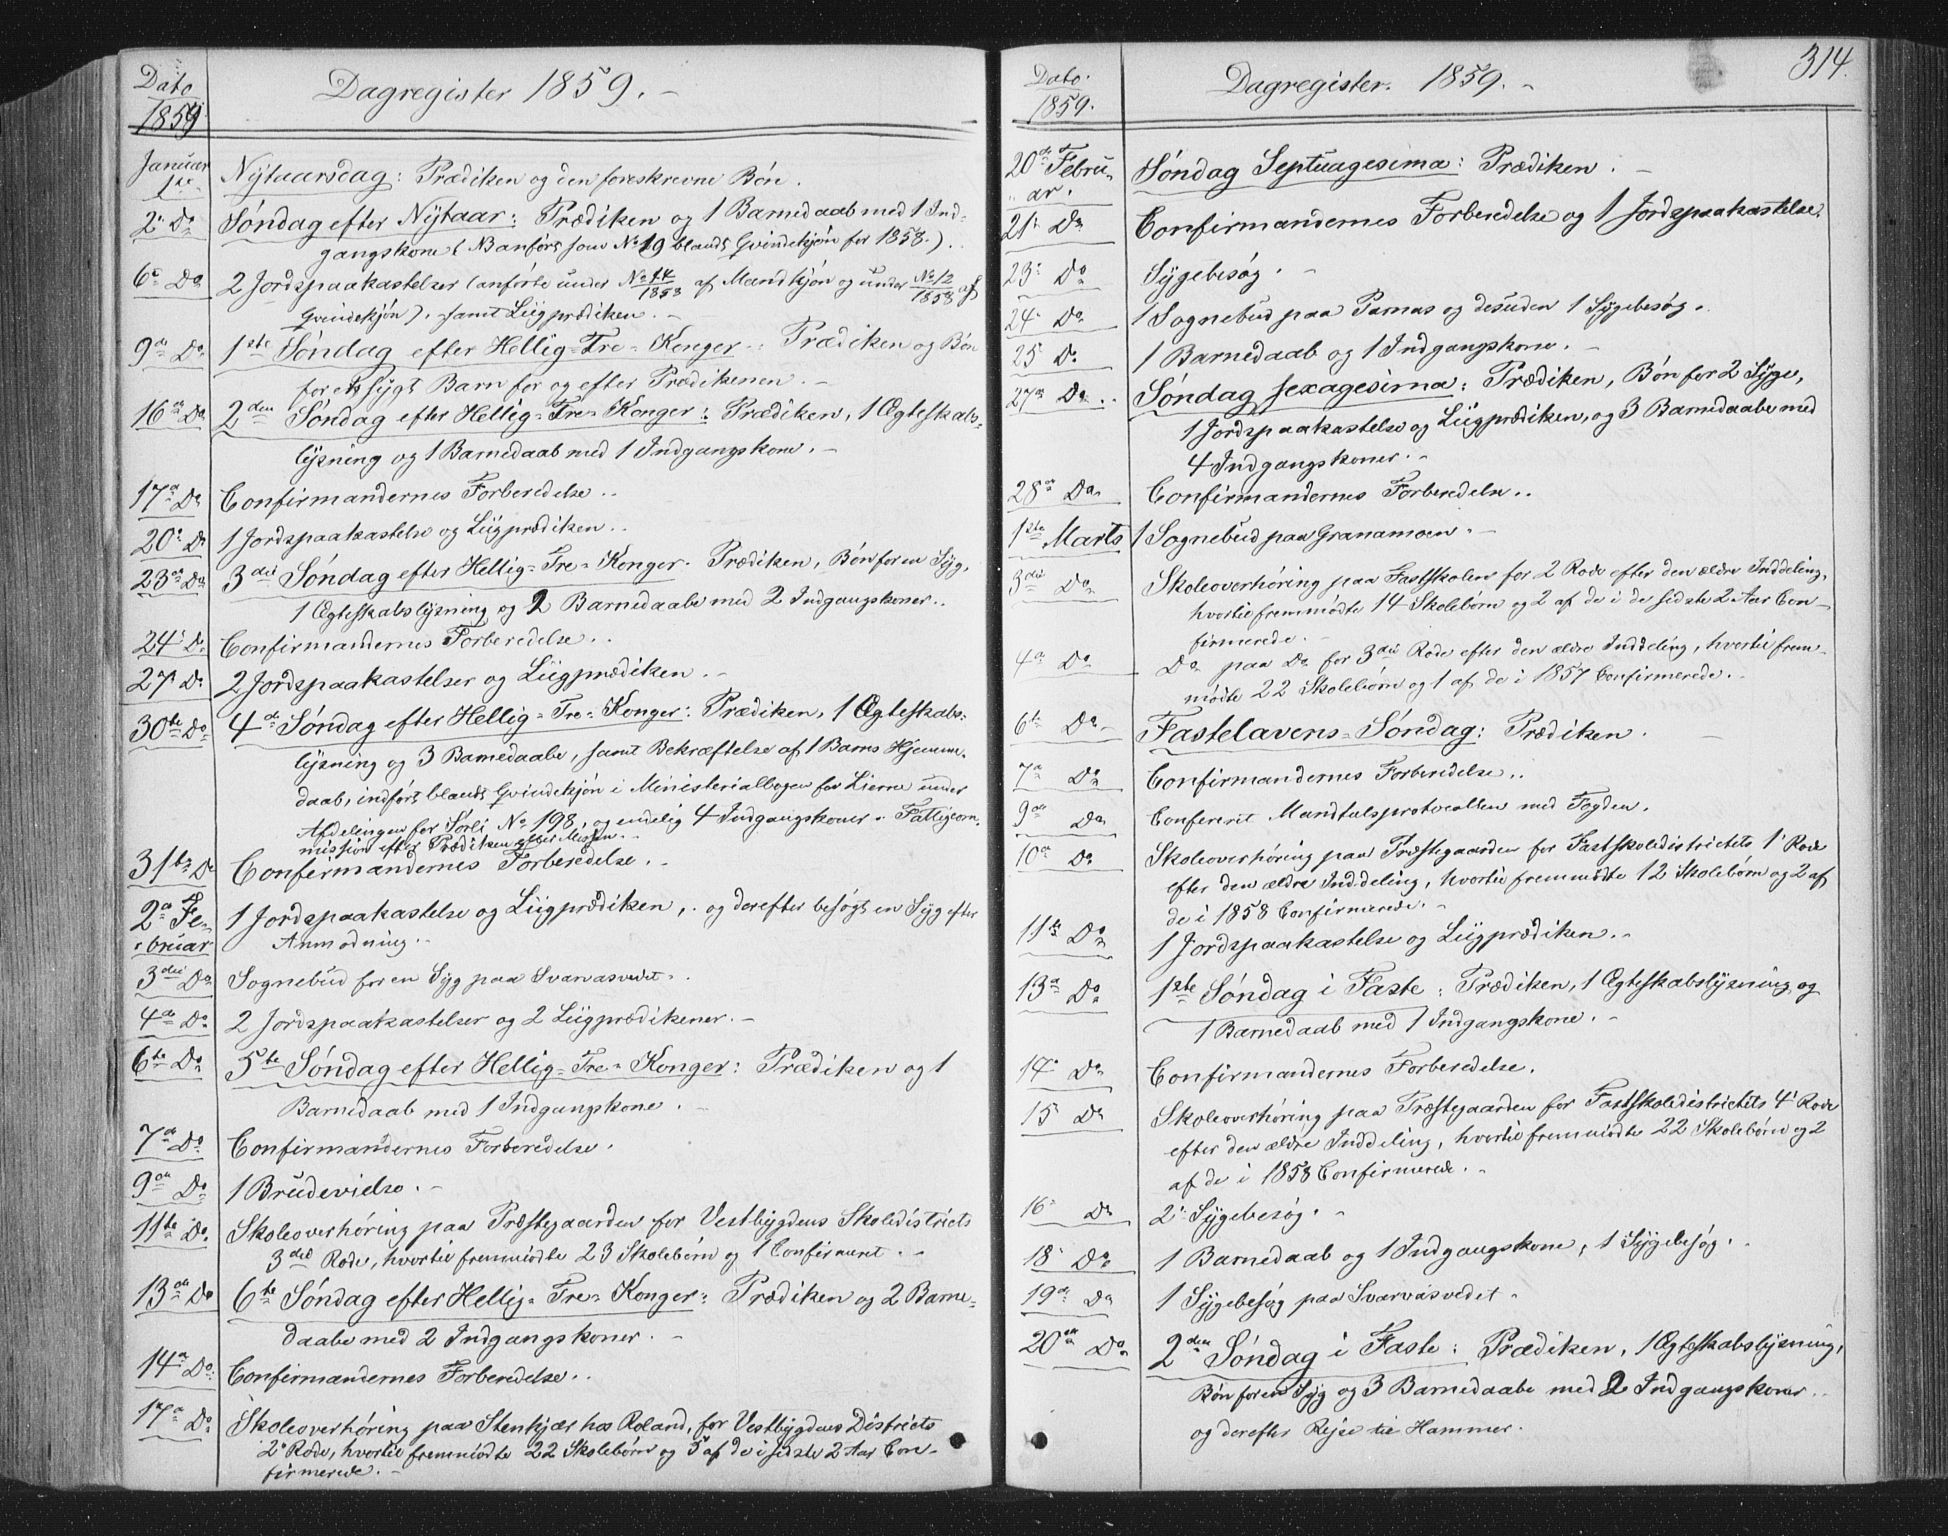 Dato
1859
Dagregister 1859.
Januar
1ste
Nytaarsdag: Prædiken og den foreskrevne Bøn.
2. Do
Søndag efter Nytaar: Prædiken og 1 Barnedaab med 1 Ind-
gangskone (NB anført som No 19 blandt Qvindekjøn for 1858.).
6te Do
2 Jordspaakastelser (anførte under No 14/1858 af Mandkjøn og under No 12/1858 af
Qvindekjøn). samt Liigprædiken.
9de Do
1ste Søndag efter Hellig-Tre-Konger: Prædiken og Bøn
for et sygt Barn for og efter Prædikenen.
16de Do
2den Søndag efter Hellig-Tre-Konger: Prædiken, 1 Ægteskabs-
lysning og 1 Barnedaab med 1 Indgangskone.
17de Do
Confirmandernes Forberedelse.
20de Do
1 Jordspaakastelse og Liigprædiken.
23de Do
3die Søndag efter Hellig-Tre-Konger. Prædiken, Bøn for en Syg,
1 Ægteskabslysning og 2 Barnedaabe med 2 Indgangskoner.
24. Do
Confirmandernes Forberedelse.
27 Do
2 Jordspaakastelser og Liigprædiken.
30te Do
4de Søndag efter Hellig-Tre-Konger: Prædiken, 1 Ægteskabs-
lysning og 3 Barnedaabe, samt Bekræftelse af 1 Barns Hjemm-
daab, indført blandt Qvindekjøn i Ministerialbogen for Lierne under
Afdelingen for Sørli No 198, og endelig 4 Indgangskoner. Fattigcom-
mission efter Prædiken eller Messen.
31te Do
Confirmandernes Forberedelse.
2de Fe-
bruar
1 Jordspaakastelse og Liigprædiken, og derefter besøgt en Syg efter
Anmodning.
3die Do
Sognebud for en Syg paa Svarvasvedet.
4de Do
2 Jordspaakastelser og 2 Liigprædikener.
6te Do
5te Søndag efter Hellig-Tre-Konger: Prædiken og 1
Barnedaab med 1 Indgangskone.
7de Do
Confirmandernes Forberedelse.
9de Do
1 Brudevielse.
11te Do
Skoleoverhøring paa Præstegaarden for Vestbygdens Skoledistricts
3die Rode, hvortil fremmødte 23 Skolebørn og 1 Confirmeret.
13de Do
6te Søndag efter Hellig-Tre-Konger: Prædiken og 2 Barne-
daabe med 2 Indgangskoner.
14de Do
Confirmandernes Forberedelse.
17de Do
Skoleoverhøring paa Stenkjær hos Roland, for Vestbygdens Districts
2. Rode, hvortil fremmødte 22 Skolebørn og 5 af de i sidste 2 Aar Con-
firmerede.
314.
Dato.
1859.
Dagregister. 1859.
20de Febru-
ar.
Søndag Septuagesima: Prædiken.
21. Do
Confirmandernes Forberedelse og 1 Jordspaakastelse.
23. Do
Sygebesøg.
24. Do
1 Sognebud paa Parnas og desuden 1 Sygebesøg.
25 Do
1 Barnedaab og 1 Indgangskone.
27de Do
Søndag sexagesima: Prædiken, Bøn for 2 Syge,
1 Jordspaakastelse og Liigprædiken, og 3 Barnedaabe med
4 Indgangskoner.
28de Do
Confirmandernes Forberedelse.
1ste Marts
1 Sognebud paa Granamoen.
3die Do
Skoleoverhøring paa Fastskolen for 2 Rode efter den ældre Inddeling,
hvortil fremmødte 14 Skolebørn og 2 af de i de sidste 2 Aar Con-
firmerede.
4de Do
Do paa Do for 3die Rode efter den ældre Inddeling, hvortil frem-
mødte 22 Skolebørn og 1 af de i 1857 Confirmerede.
6te Do
Fastelavens-Søndag: Prædiken.
7de Do
Confirmandernes Forberedelse.
9de Do
Confereret Mandtalsprotocollen med Fogden.
10de Do
Skoleoverhøring paa Præstegaarden for Fastskoledistrictets 1. Rode
efter den ældre Inddeling, hvortil fremmødte 12 Skolebørn og 2 af
de i 1858 Confirmerede.
11te Do
1 Jordspaakastelse og Liigprædiken.
13de Do
1ste Søndag i Faste: Prædiken, 1 Ægteskabslysning og
1 Barnedaab med 1 Indgangskone.
14. Do
Confirmandernes Forberedelse.
15 Do
Skoleoverhøring paa Præstegaarden for Fastskoledistrictets 4. Rode
efter den ældre Inddeling, hvortil fremmødte 22 Skolebørn og 2
af de i 1858 Confirmerede.
16. Do
2. Sygebesøg.
18. Do
1 Barnedaab og 1 Indgangskone, 1 Sygebesøg.
19de Do
1 Sygebesøg paa Svarvasvedet.
20de Do
2den Søndag i Faste: Prædiken, 1 Ægteskabslysning,
Bøn for en Syg og 3 Barnedaabe med 2 Indgangskoner.
og derefter Rejse til Hammer.